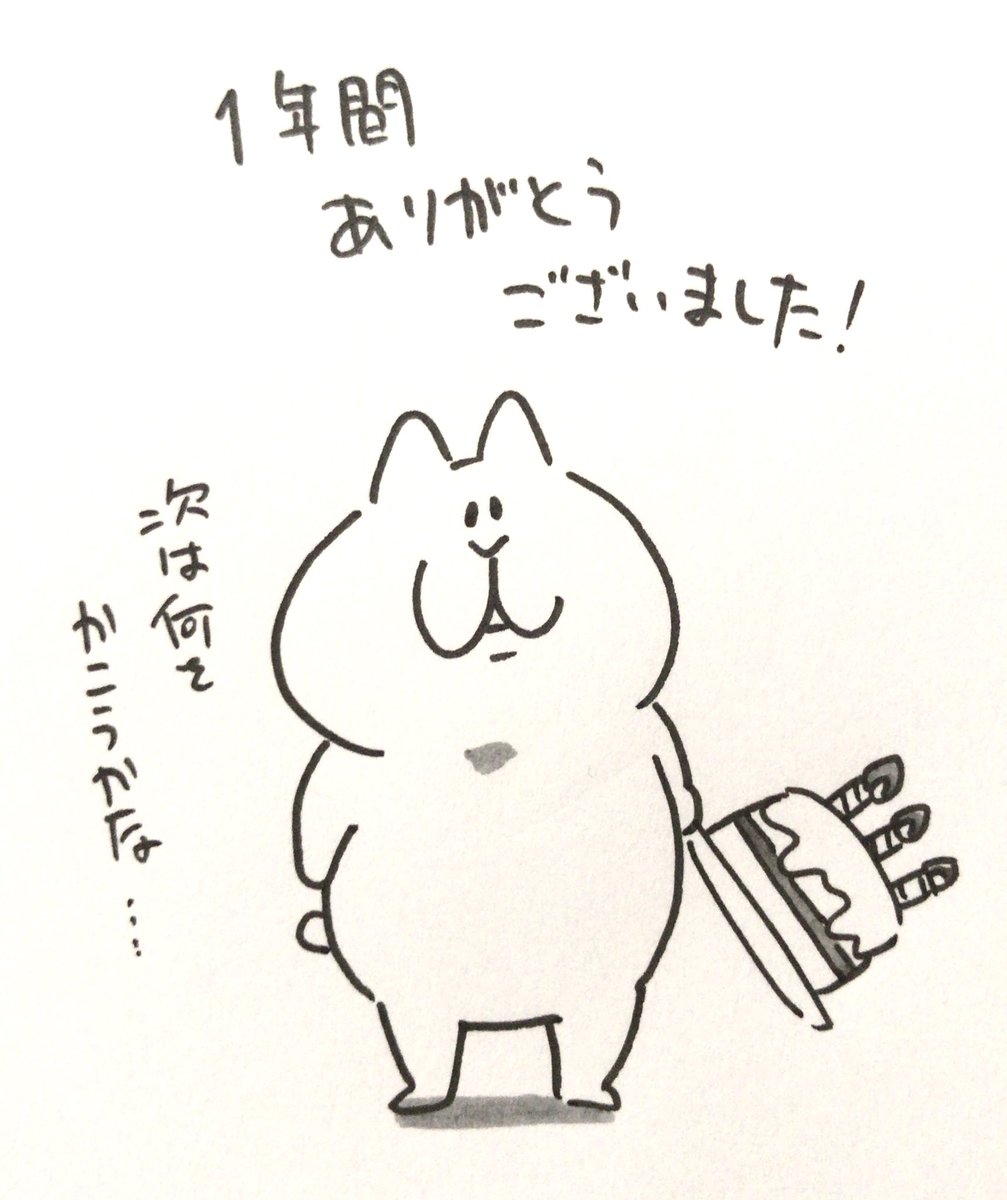 1年間
ありがとう
ございました!
次は何を
かこうかな…